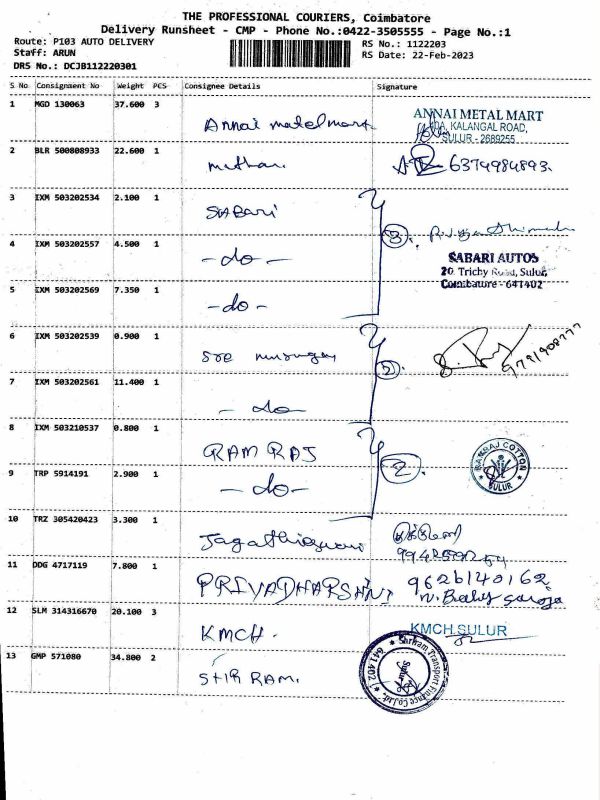 THE PROFESSIONAL COURIERS, Coimbatore
Delivery Runsheet - CMP - Phone No.:0422-3505555 - Page No.:1
Route: P103 AUTO DELIVERY
RS No.: 1122203
Staff: ARUN
RS Date: 22-Feb-2023
DRS No.: DCJB112220301
S No Consignment No Weight PCS Consignee Details Signature
1 MGD 130063 37.600 3 Annai metal mart
ANNAI METAL MART
KALANGAL ROAD,
SULUR - 2689255
2 BLR 500808933 22.600 1 6374984893.
3 IXM 503202534 2.100 1 SABARI
3
4 IXM 503202557 4.500 1 - do -
SABARI AUTOS
20, Trichy Road, Sulur,
Coimbatore - 641402
5 IXM 503202569 7.350 1 - do -
6 IXM 503202539 0.900 1
7 IXM 503202561 11.400 1 - do -
8 IXM 503210537 0.800 1 RAM RAJ
2.
RAMRAJ COTTON
SULUR
9 TRP 5914191 2.900 1 - do -
10 TRZ 305420423 3.300 1
11 DDG 4717119 7.800 1 PRIYADHARSHINI 9626140162
12 SLM 314316670 20.100 3 KMCH.
KMCH.SULUR
13 GMP 571080 34.800 2 RAM.
Shriram Transport Finance Co.Ltd.
Sulur
641402